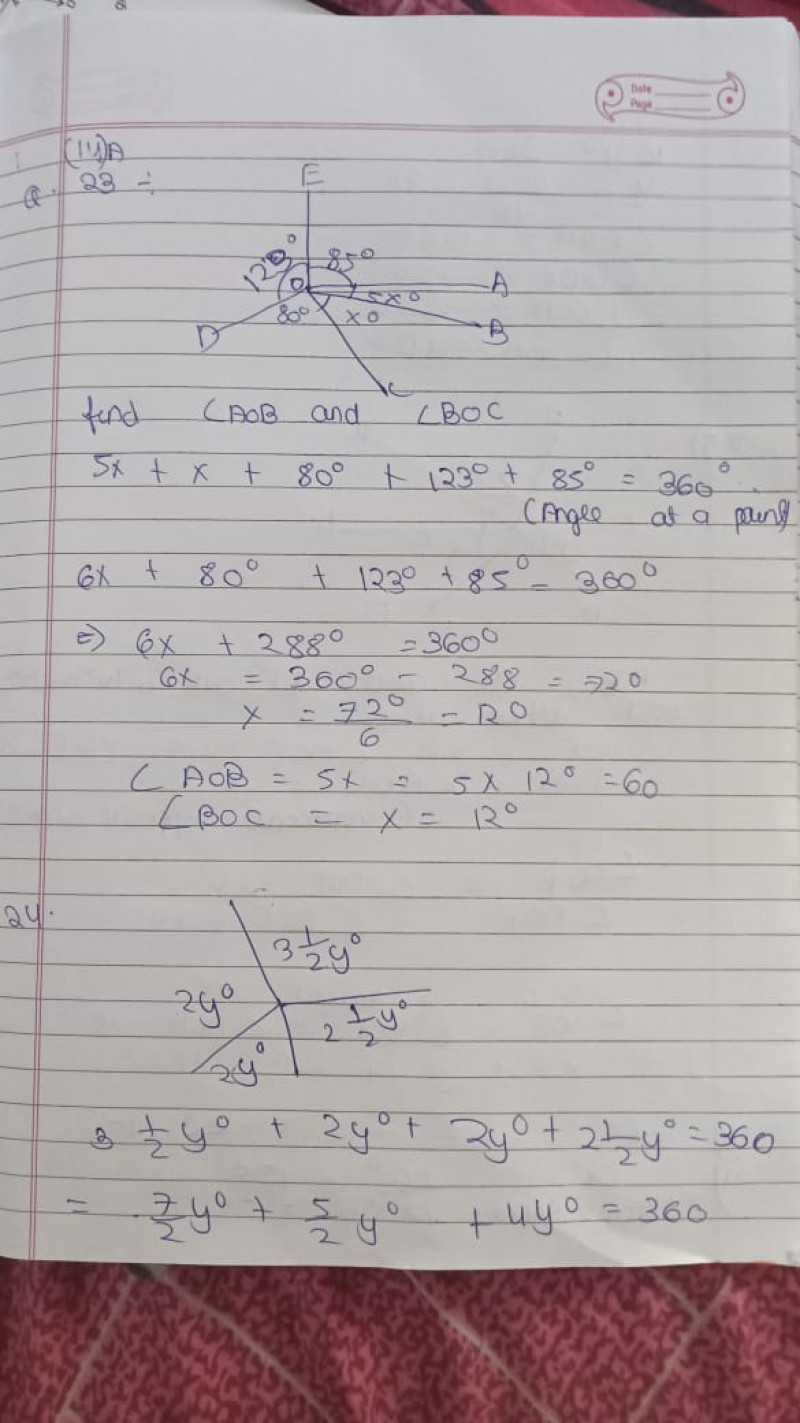 Date
Page
(14)A
Q. 23 ÷
E
123°
85°
O
A
5x°
80°
x°
D
B
C
find ∠AOB and ∠BOC
5x + x + 80° + 123° + 85° = 360°
(Angle at a point)
6x + 80° + 123° + 85° = 360°
=> 6x + 288° = 360°
6x = 360° - 288 = 720
x = 72°/6 = 120
∠AOB = 5x = 5 x 12° = 60
∠BOC = x = 12°
24.
3 1/2 y°
2y°
2 1/2 y°
2y°
3 1/2 y° + 2y° + 2y° + 2 1/2 y° = 360
= 7/2 y° + 5/2 y° + 4y° = 360